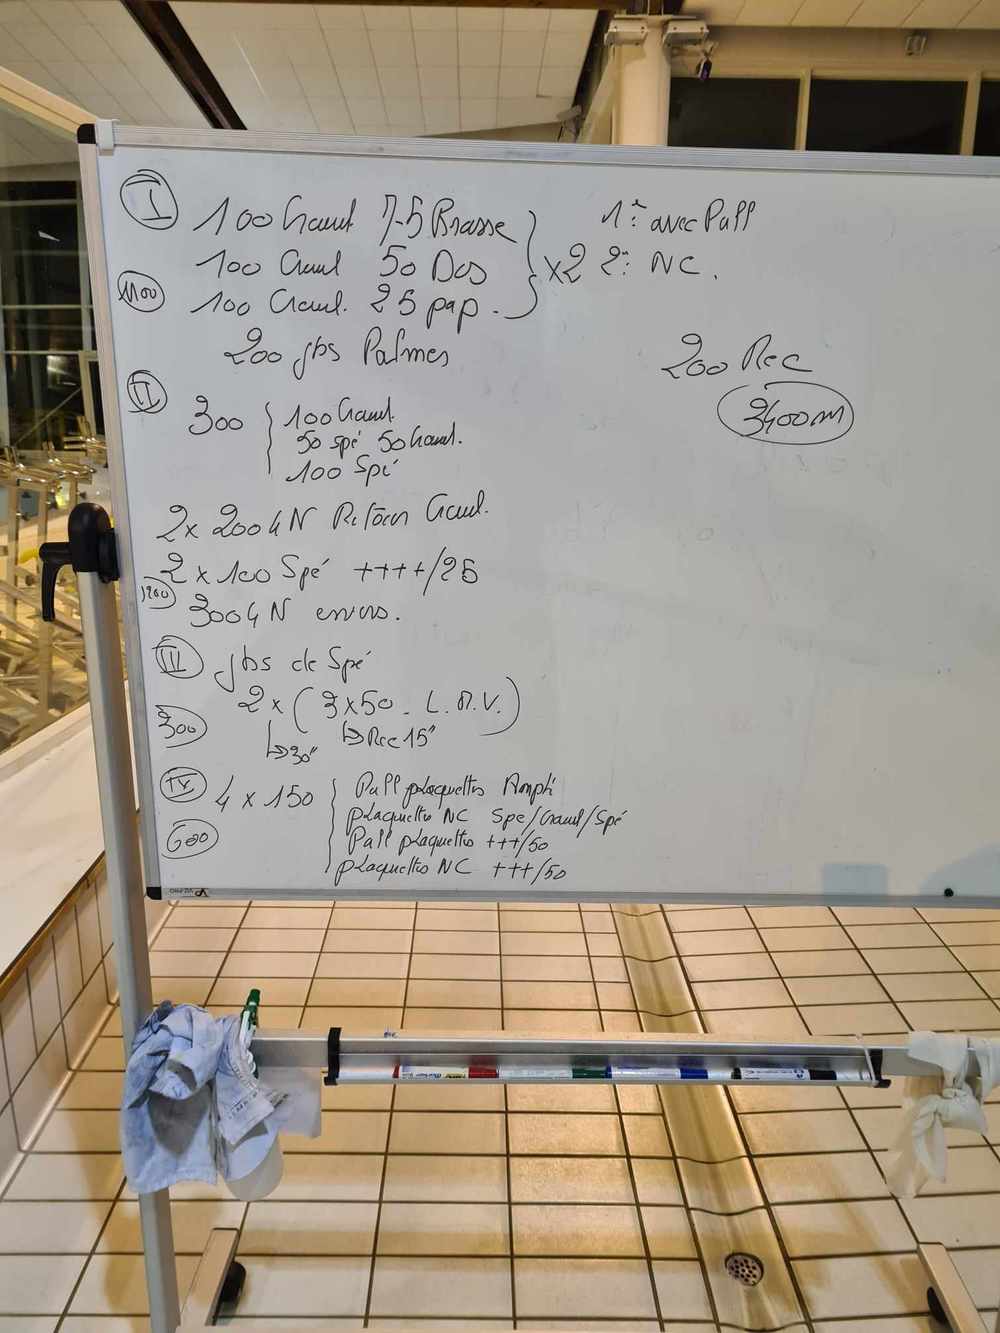 I
100 Crawl 75 Brasse
100 Crawl 50 Dos
1100
100 Crawl. 25 pap.
x2
1°: avec Pull
2°: NC.
200 jbs Palmes
200 Rec
3400m
II
300
100 Crawl.
50 spé 50 Crawl.
100 Spé
2x 200 4N Retour Crawl.
2 x 100 Spé ++++/25
1200
300 4N envers.
III
jbs de Spé
2 x ( 3x50 - L.M.V. )
300
↳30" ↳Rec 15"
IV
4 x 150
600
Pull plaquettes Ampli
plaquettes NC Spé/Crawl/Spé
Pull plaquettes +++/50
plaquettes NC +++/50